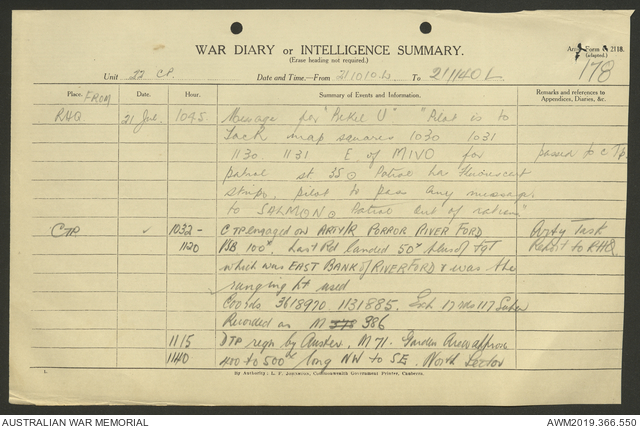 WAR DIARY or INTELLIGENCE SUMMARY.
(Erase heading not required.)
Army Form 2118.
(Adapted.)
178
Unit 22 C.P. Date and Time—From 211010L To 211140L
Place. FROM Date. Hour. Summary of Events and Information. Remarks and references to Appendices, Diaries, &c.
RHQ 21 Jul. 1045 Message for "Pekel U" "Pilot is to
Tack map squares 1030 1031
1130 1131 E. of MIVO for passed to C Tp.
patrol st 35 Patrol has fluorescent
strips pilot to pass any message
to SALMON Patrol out of rations"
C TP. 1032- C TP engaged on ARTY/R PORROR RIVER FORD Arty Task
1120 100x. Last Rd landed 50x of tgt Report to RHQ.
which was EAST BANK of RIVER FORD & was the
ranging used
Coords 3618970 1131885. 17 117
Recorded as M 386
1115 DTP by Auster, M 71. Garden Area approx
1140 400 to 500x long NW to SE. North Sector
1.
By Authority: L. F. Johnston, Commonwealth Government Printer, Canberra.
AUSTRALIAN WAR MEMORIAL AWM2019.366.550